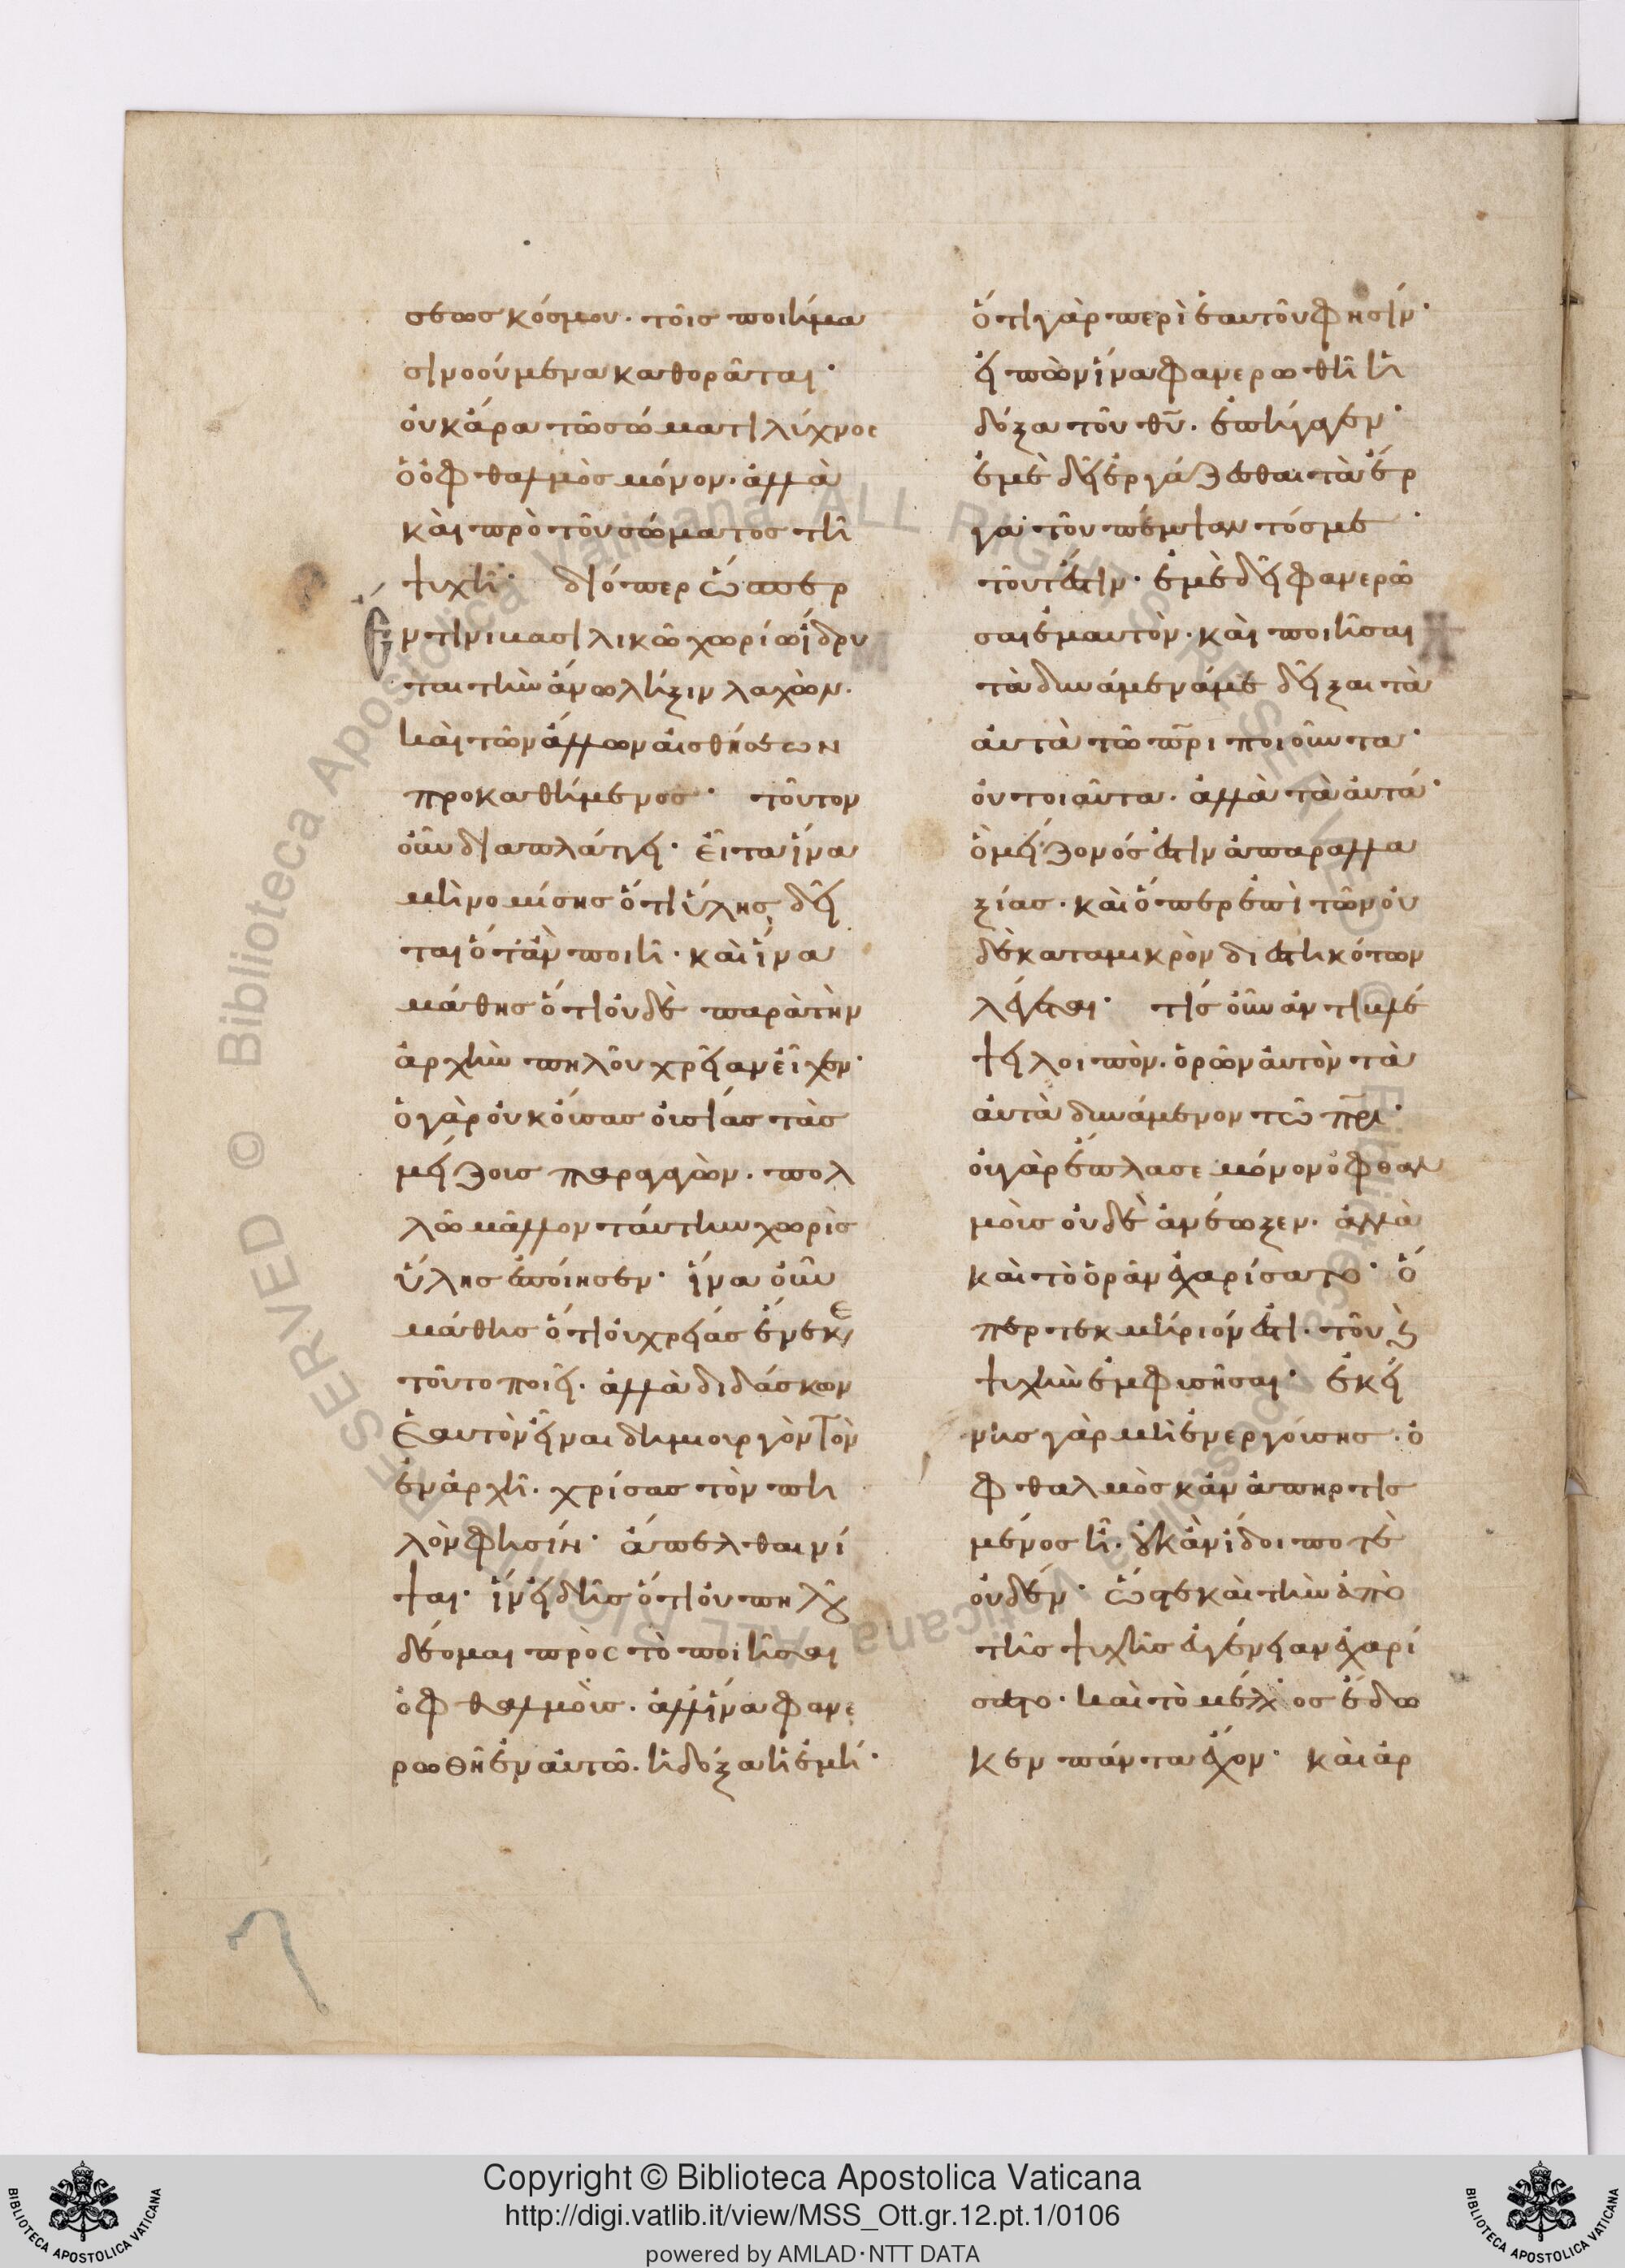 σεως κόσμου. τοῖς ποιήμα
σι νοούμενα καθορᾶται·
οὐκ ἄρα τῶ σώματι λύχνος
ὁ ὀφθαλμὸς μόνον. ἀλλὰ
καὶ πρὸ τοῦ σώματος τῆ
ψυχῆ· διόπερ ὥσπερ
ἔν τινι βασιλικῶ χωρίω ἵδρυ
ται τὴν ἄνω λῆξιν λαχὼν.
καὶ τῶν ἄλλων αἰσθήσεων
προκαθήμενος· τοῦτον
οὖν διαπλάττει· εἶτα ἵνα
μὴ νομίσης ὅτι ὕλης δεῖ
ται ὅταν ποιῆ· καὶ ἵνα
μάθης ὅτι οὐδὲ παρὰ τὴν
ἀρχὴν πηλοῦ χρείαν εἶχεν·
ὁ γὰρ οὐκ οὔσας οὐσίας τὰς
μείζους παραγαγὼν. πολ
λῶ μᾶλλον ταύτην χωρὶς
ὕλης ἐποίησεν· ἵνα οὖν
μάθης ὅτι οὐ χρείας ἕνεκε
τοῦτο ποιεῖ. ἀλλὰ διδάσκων
ἑαυτὸν εἶναι δημιουργὸν τὸν
ἐν ἀρχῆ. χρίσας τὸν πη
λὸν φησίν· ἄπελθαι νί
ψαι· ἵν' εἰδῆς ὅτι οὐ πηλοῦ
δέομαι πρὸς τὸ ποιῆσαι
ὀφθαλμοὺς. ἀλλ' ἵνα φανε
ρωθῆ ἐν αὐτῶ. ἡ δόξα ἡ ἐμή·
ὅτι γὰρ περὶ ἑαυτοῦ φησίν·
εἰπὼν ἵνα φανερωθῆ ἡ
δόξα τοῦ θυ. ἐπήγαγεν·
ἐμὲ δεῖ ἐργάζεσθαι τὰ ἔρ
γα τοῦ πέμψαντός με·
τουτέστιν. ἐμὲ δεῖ φανερῶ
σαι ἐμαυτὸν. καὶ ποιῆσαι
τὰ δυνάμενά με δεῖξαι τὰ
αὐτὰ τῶ πρι ποιοῦντα·
οὐ τοιαῦτα. ἀλλὰ τὰ αὐτά·
ὃ μείζονός ἐστιν ἀπαραλλα
ξίας. καὶ ὅπερ ἐπὶ τῶν οὐ
δὲ κατα μικρὸν διεστηκότων
λέγεται· τίς οὖν ἀντιβλέ
ψει λοιπὸν. ὁρῶν αὐτὸν τὰ
αὐτὰ δυνάμενον τῶ πρι·
οὐ γὰρ ἔπλασε μόνον ὀφθαλ
μοὺς οὐδὲ ἀνέωξεν. ἀλλὰ
καὶ τὸ ὁρᾶν ἐχαρίσατο· ὅ
περ τεκμήριόν ἐστι. τοῦ καὶ
ψυχὴν ἐμφυσῆσαι· ἐκεί
νης γὰρ μὴ ἐνεργούσης. ὁ
φθαλμὸς κἂν ἀπηρτισ
μένος ῆ. οὐκ ἂν ἴδοι ποτὲ
οὐδέν· ὥστε καὶ τὴν ἀπὸ
τῆς ψυχῆς εὐγένειαν ἐχαρί
σατο. καὶ τὸ μέλος ἔδω
κεν πάντα ἔχον· καὶ ἀρ